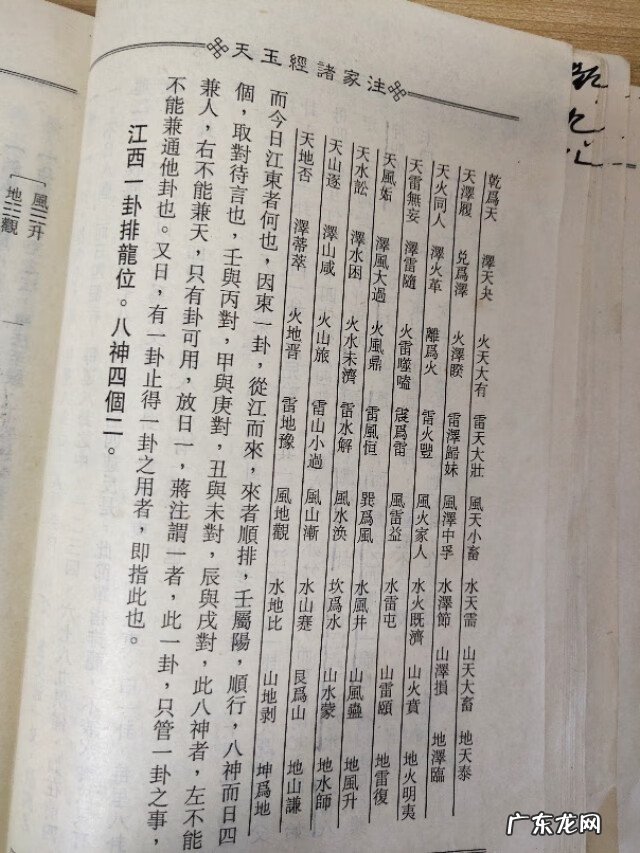 天玉經諸家注
乾爲天 澤天夬 火天大有 雷天大壯 風天小畜 水天需 山天大畜 地天泰
天澤履 兌爲澤 火澤睽 雷澤歸妹 風澤中孚 水澤節 山澤損 地澤臨
天火同人 澤火革 離爲火 雷火豐 風火家人 水火既濟 山火賁 地火明夷
天雷無妄 澤雷隨 火雷噬嗑 震爲雷 風雷益 水雷屯 山雷頤 地雷復
天風姤 澤風大過 火風鼎 雷風恒 巽爲風 水風井 山風蠱 地風升
天水訟 澤水困 火水未濟 雷水解 風水渙 坎爲水 山水蒙 地水師
天山遂 澤山咸 火山旅 雷山小過 風山漸 水山蹇 艮爲山 地山謙
天地否 澤蒂萃 火地晋 雷地豫 風地觀 水地比 山地剝 坤爲地
而今日江東者何也，因東一卦，從江而來，來者順排，壬屬陽，順行，八神而日四
個，取對待言也，壬與丙對，甲與庚對，丑與未對，辰與戌對，此八神者，左不能
兼人，右不能兼天，只有卦可用，放日一，蔣注謂一者，此一卦，只管一卦之事，
不能兼通他卦也。又日，有一卦止得一卦之用者，即指此也。
江西一卦排龍位。八神四個二。
風 升
地 觀
广东龙网